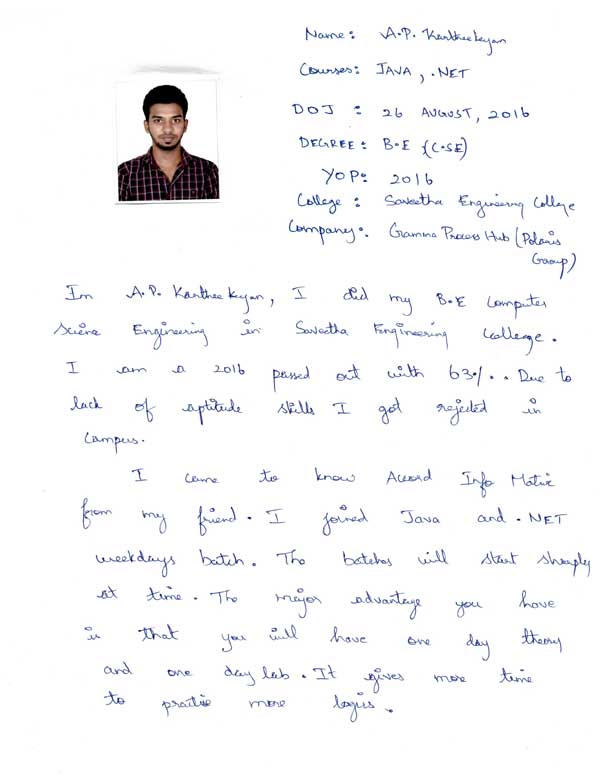 Name: A.P. Kartheekeyan
Courses: JAVA, .NET
DOJ : 26 AUGUST, 2016
DEGREE: B.E {C.SE)
YOP: 2016
College : Saveetha Engineering College
Company: Gramma Process Hub (Polaris
Group)
Im A.P. Kartheekeyan, I did my B.E Computer
Sciene Engineering in Saveetha Engineering College.
I am a 2016 passed out with 63%. . Due to
lack of aptitude skills I got rejected in
campus.
I came to know Accord Info Matrix
from my friend. I joined Java and .NET
weekdays batch. The batches will start sharply
at time. The major advantage you have
is that you will have one day theory
and one day lab. It gives more time
to practise more logics.